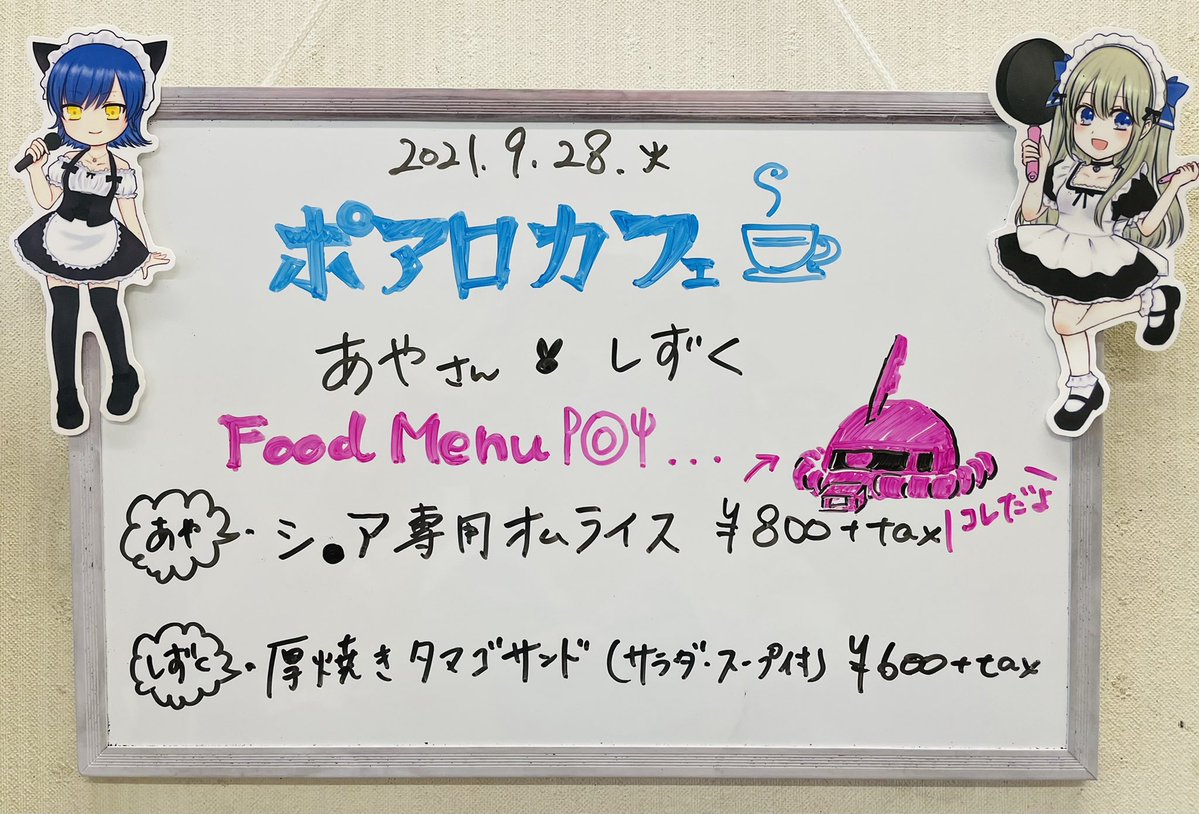 2021.9.28.火
ポアロカフェ
あやさん しずく
Food Menu
コレだよ
あや・シ●ア専用オムライス ¥800+tax
しずく・厚焼きタマゴサンド(サラダ・スープ付) ¥600+tax